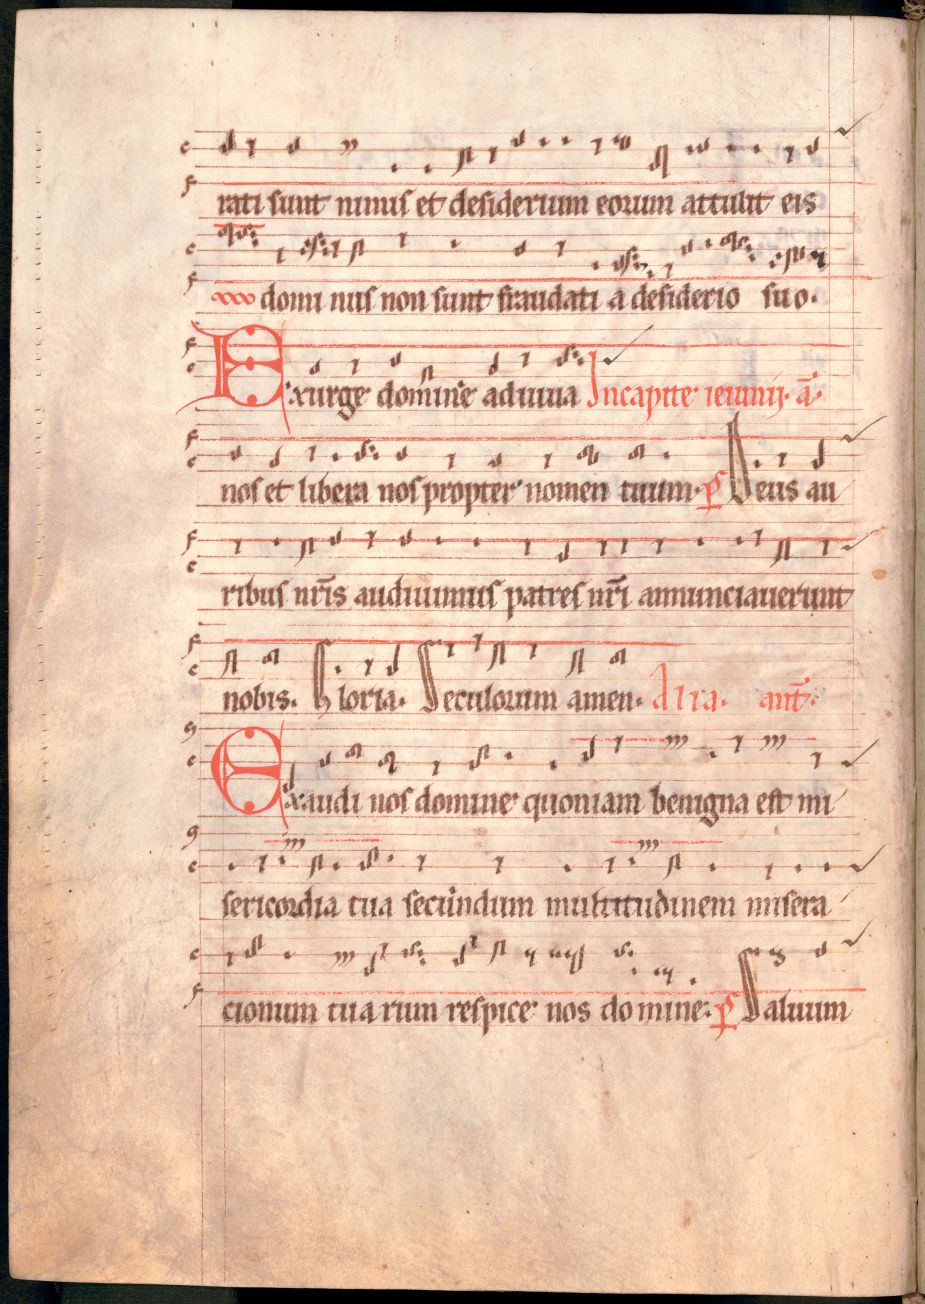 rati sunt nimis et desiderium eorum attulit eis
domi nus non sunt fraudati a desiderio suo.
Exurge domine adiuua In capite ieiunij. a͞.
nos et libera nos propter nomen tuum. p̱s Deus au
ribus nr̄is audiuimus patres nr̄i annunciauerunt
nobis. Gloria. Seculorum amen. Alia. ant̄.
Exaudi nos domine quoniam benigna est mi
sericordia tua secundum multitudinem misera
cionum tua rum respice nos do mine. p̱s Saluum